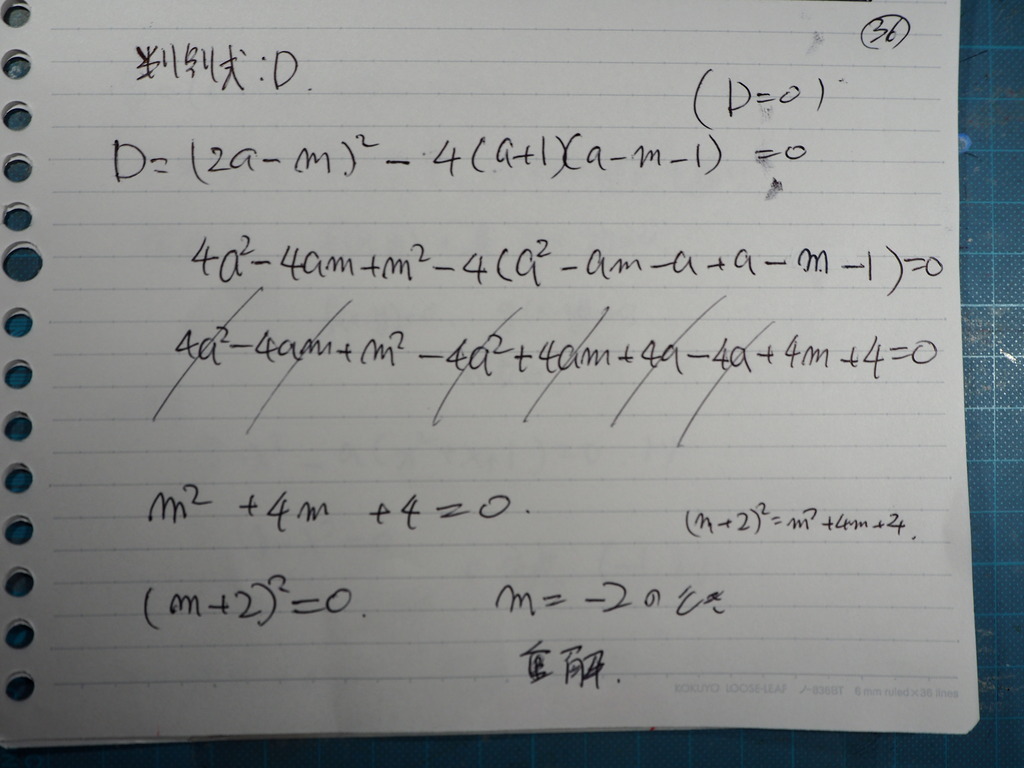 ㊱
判別式:D.
(D=0)
D=(2a-m)²-4(a+1)(a-m-1)=0
4a²-4am+m²-4(a²-am-a+a-m-1)=0
4a²-4am+m²-4a²+4am+4a-4a+4m+4=0
m²+4m+4=0.
(m+2)²=m²+4m+4.
(m+2)²=0. m=-2のとき
重解.
KOKUYO LOOSE-LEAF ノ-836BT 6 mm ruled×36 lines